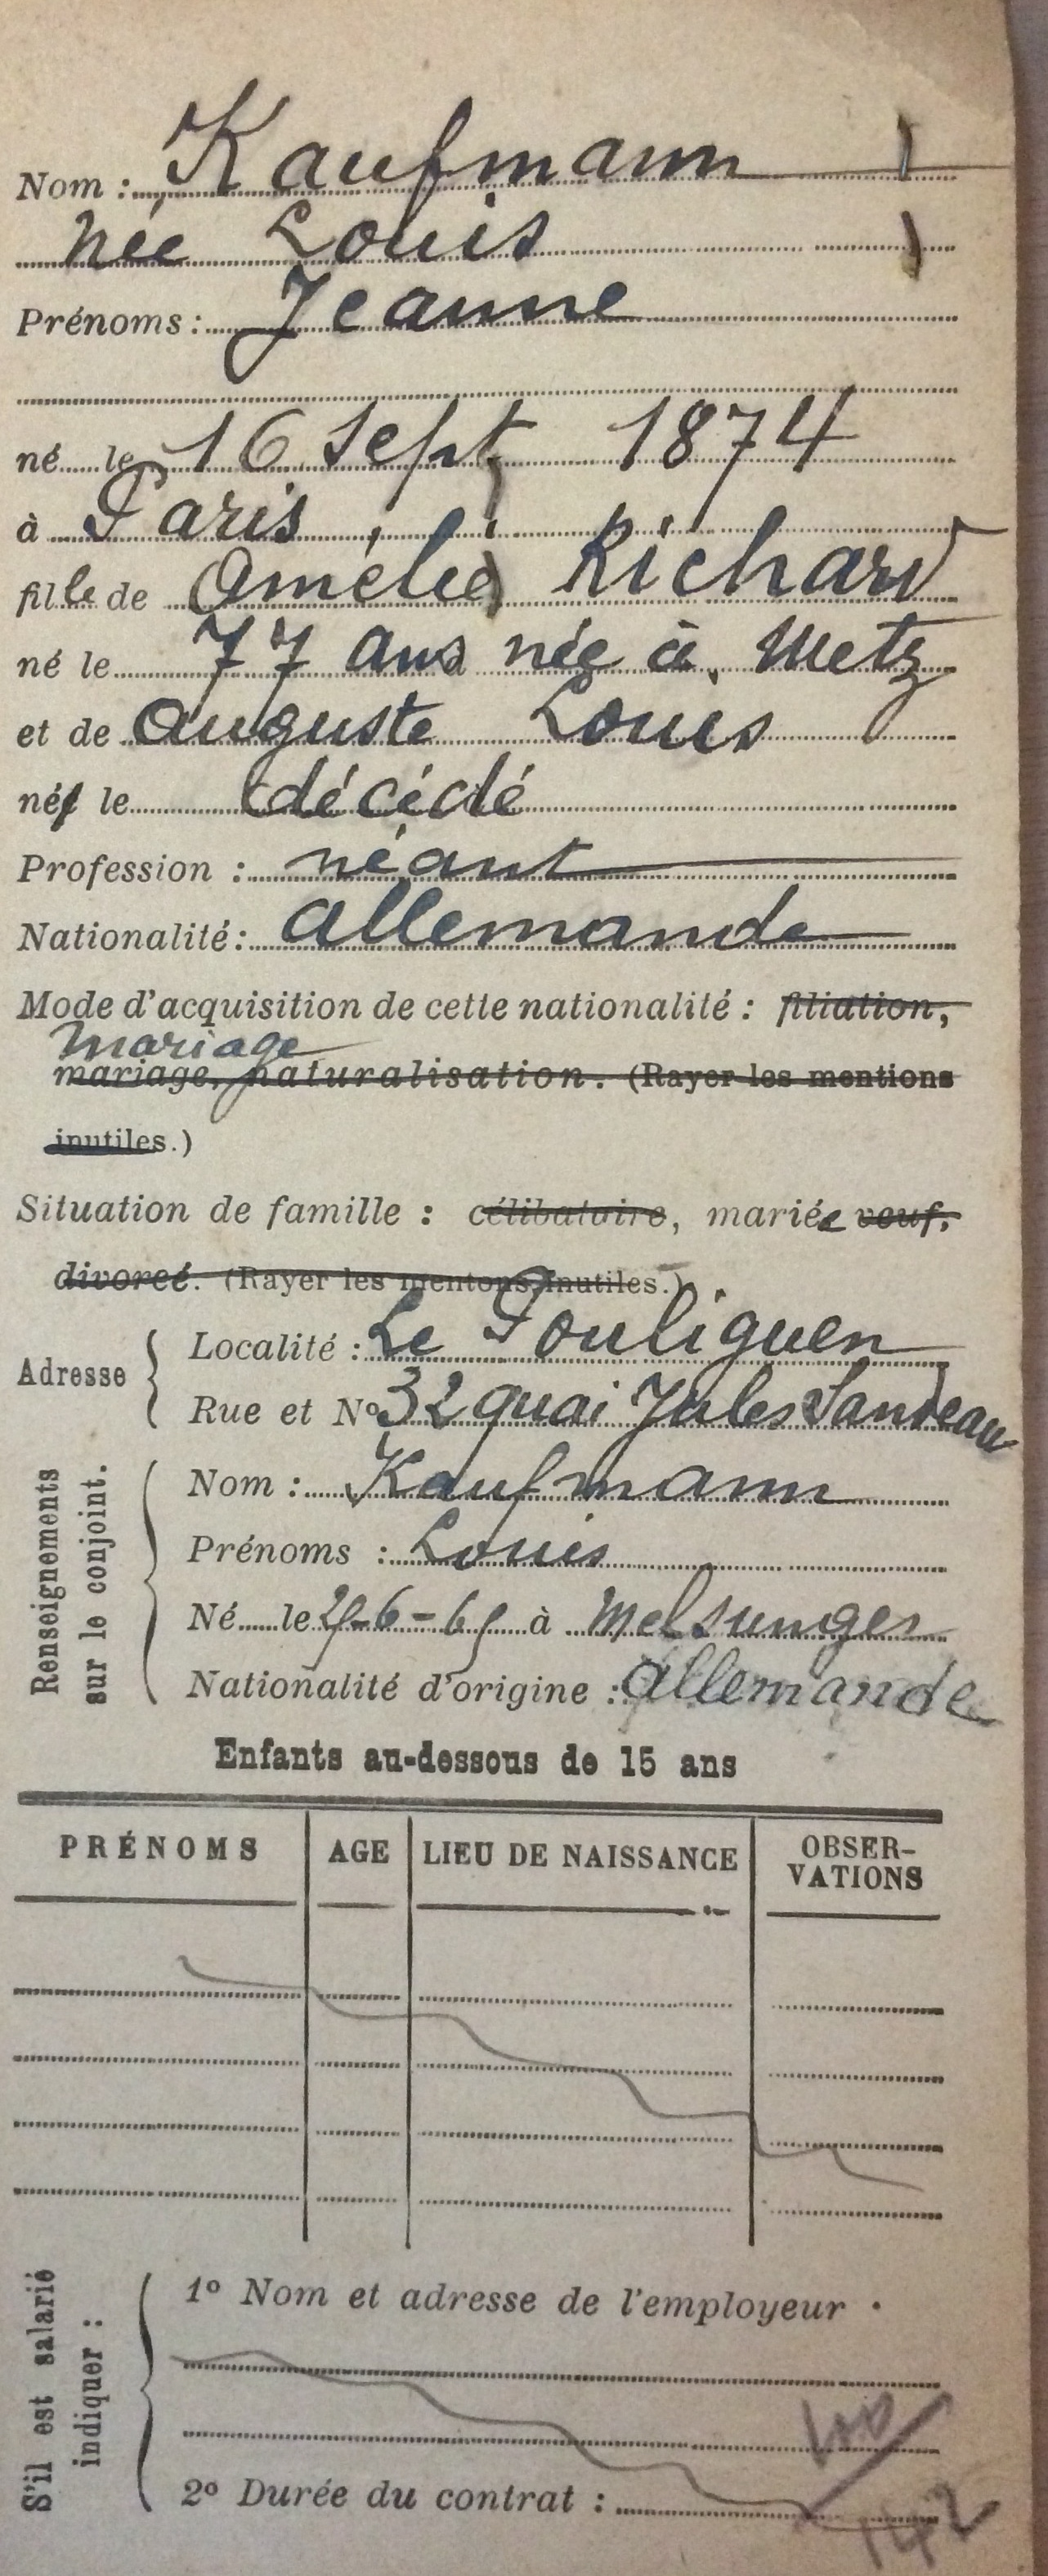 Nom : Kaufmann
née Louis
Prénoms : Jeanne
né le 16 Sept 1874
à Paris
fille de Amélie Richard
né le 77 ans née à Metz
et de Auguste Louis
né le décédé
Profession : néant
Nationalité : allemande
Mode d'acquisition de cette nationalité : filiation,
Mariage
mariage, naturalisation. (Rayer les mentions
inutiles.)
Situation de famille : célibataire, mariée veuf,
divorcé. (Rayer les mentons inutiles.)
Adresse
Localité : Le Pouliguen
Rue et N° 32 quai Jules Sandeau
Renseignements
sur le conjoint.
Nom : Kaufmann
Prénoms : Louis
Né le à Melsungen
Nationalité d'origine : allemande
Enfants au-dessous de 15 ans
PRÉNOMS AGE LIEU DE NAISSANCE OBSER-
VATIONS
S'il est salarié
indiquer :
1° Nom et adresse de l'employeur
2° Durée du contrat :